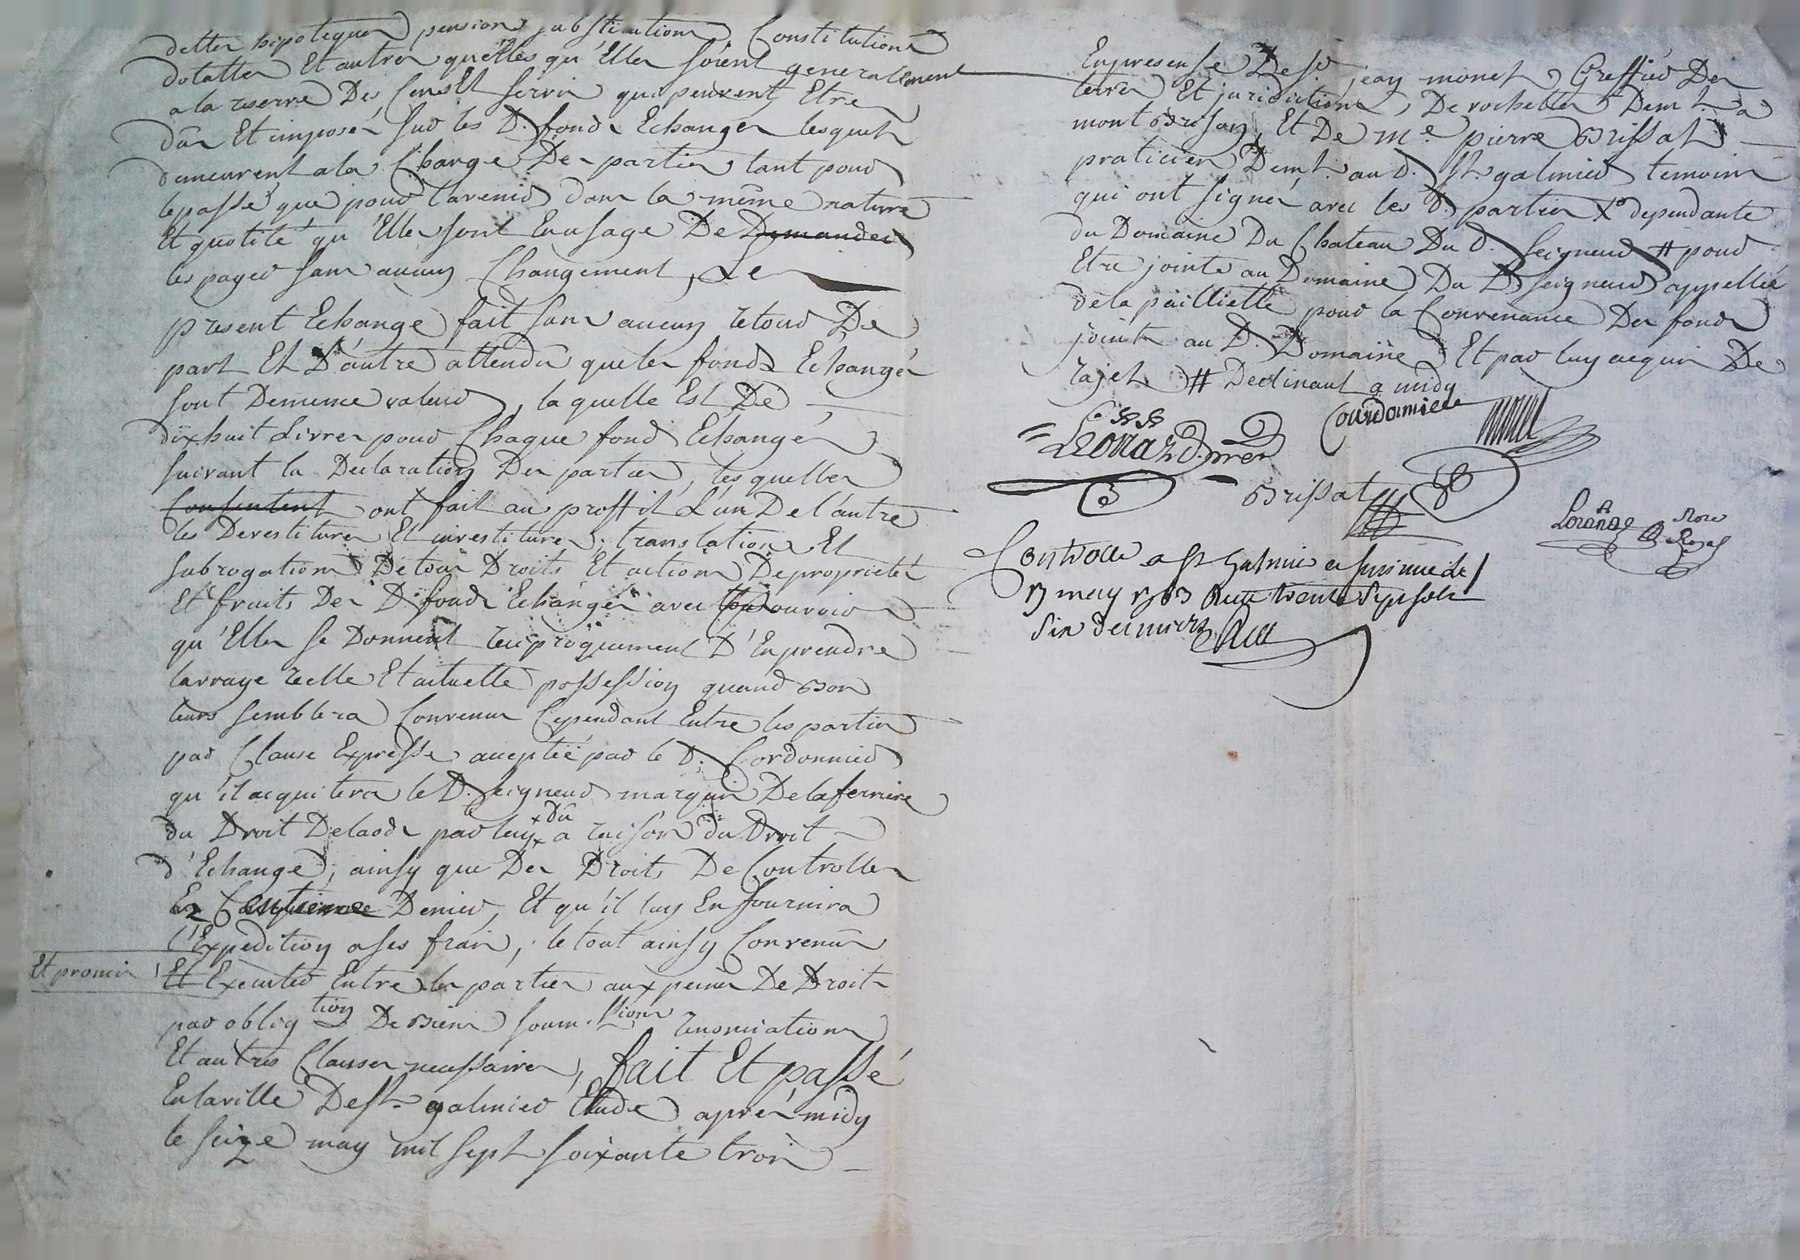 dettes hipoteques pensions substitutions Constitutions
dotalles Et autres quelles qu'Elles soient generalement
a la reserve Des Cens Et servis qui peuvent Etre
dûs Et imposés sur les D. fonds Echangés lesquels
demeurent a la Charge Des parties tant pour
le passé que pour l'avenir dans la même nature
Et quotité qu'Elles sont En usage De Demander
les payer sans aucun Changement, Le
present Echange fait sans aucun retour De
part Et D'autre attendu que les fonds Echangés
sont De meme valeur, la quelle Est De
dixhuit Livres pour Chaque fond Echangé
suivant la Declaration Des parties, les quelles
Consentent ont fait au proffit L'un De l'autre
les Devestitures Et investitures, translations Et
subrogations De tous Droits Et actions De proprieté
Et fruits Des D. fonds Echangés avec pouvoir
qu'Elles se Donnent reciproquement D'En prendre
la vraye reelle Et actuelle possession quand bon
leurs semblera Convenu Cependant Entre les parties
par Clause Expresse acceptée par le D. Cordonnier
qu'il acquitera le D. seigneur marquis De la ferriere
du Droit De laods par luy dû a raison du Droit
d'Echange, ainsy que Des Droits De Controlle
Et Centieme Denier, Et qu'il luy En fournira
l'Expedition a ses frais, le tout ainsy Convenu
Et promis Et Executer Entre les parties aux peines De Droit
par obligation De biens soumissions renonciations
Et autres Clauses necessaires, fait Et passé
En la ville De St. galmier Etude après midy
le seize may mil sept soixante trois
En presense De Sr. jean monet Greffier Des
terres Et juridictions De rochetter Demt. a
montbrison, Et De Me. pierre Brissat
praticien Demt. au d. St. galmier temoins
qui ont signé avec les d. parties Xo dependante
du Domaine Du Chateau Du d. seigneur # pour
Etre jointe au Domaine Du D. seigneur appellée
de la paillette pour la Convenance Des fonds
joints au D. Domaine Et par luy acquis De
rajet # Declinant a midy
Courdomiere
Leonard
Brissat
Lorange Nore Royal
Controllé a St Galmier
17 may 1763 Reçu trente sept sols
Six deniers